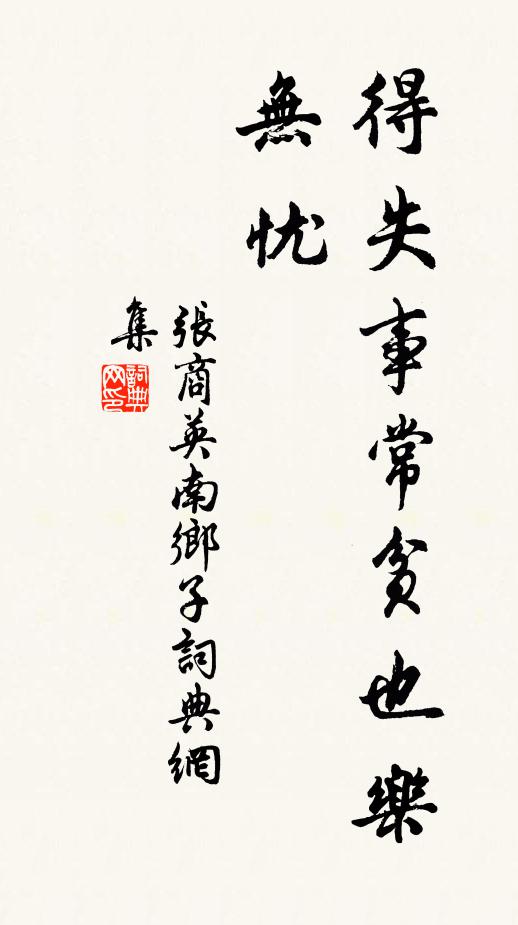 得失事常貧也樂
無忧
張商英南鄉子詞典網
集
詞典
网印